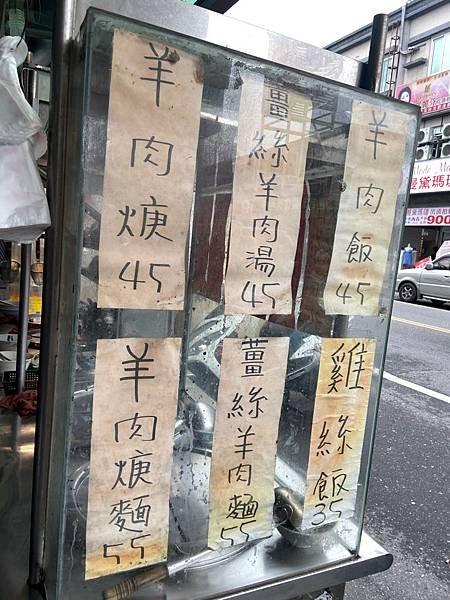 羊肉焿45
薑絲羊肉湯45
羊肉飯45
羊肉焿麵55
薑絲羊肉麵55
雞絲飯35
黛瑪
900